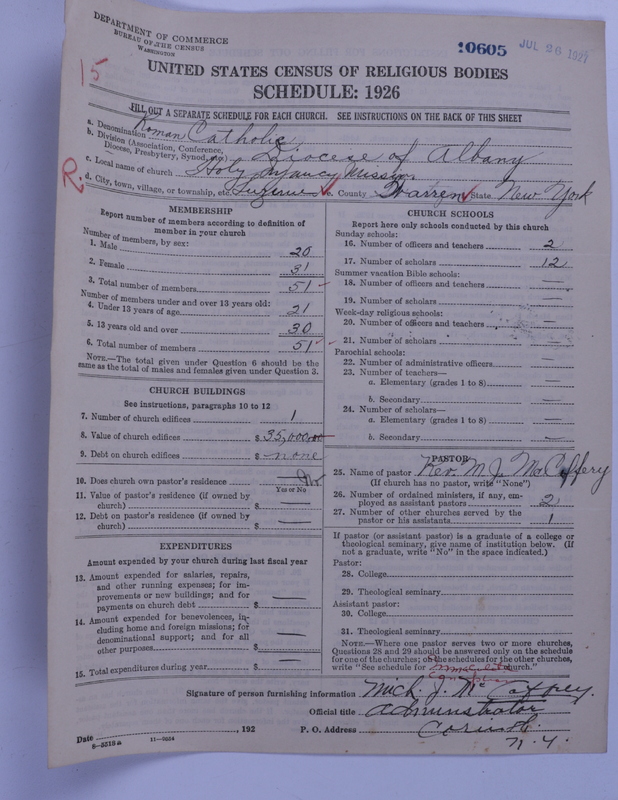 DEPARTMENT OF COMMERCE
BUREAU OF THE CENSUS
WASHINGTON
10605
JUL 26 1927
15
UNITED STATES CENSUS OF RELIGIOUS BODIES
SCHEDULE: 1926
FILL OUT A SEPARATE SCHEDULE FOR EACH CHURCH. SEE INSTRUCTIONS ON THE BACK OF THIS SHEET
a. Denomination Roman Catholic
b. Division (Association, Conference,
Diocese, Presbytery, Synod, etc.) Diocese of Albany
c. Local name of church Holy Infancy Mission
R
d. City, town, village, or township, etc. Luzerne e. County Warren State New York
MEMBERSHIP
Report number of members according to definition of
member in your church
Number of members, by sex:
1. Male 20
2. Female 31
3. Total number of members 51
Number of members under and over 13 years old:
4. Under 13 years of age 21
5. 13 years old and over 30
6. Total number of members 51
NOTE.—The total given under Question 6 should be the
same as the total of males and females given under Question 3.
CHURCH BUILDINGS
See instructions, paragraphs 10 to 12
7. Number of church edifices 1
8. Value of church edifices $ 35,000.00
9. Debt on church edifices $ none
10. Does church own pastor's residence No
Yes or No
11. Value of pastor's residence (if owned by
church) $ —
12. Debt on pastor's residence (if owned by
church) $ —
EXPENDITURES
Amount expended by your church during last fiscal year
13. Amount expended for salaries, repairs,
and other running expenses; for im-
provements or new buildings; and for
payments on church debt $ —
14. Amount expended for benevolences, in-
cluding home and foreign missions; for
denominational support; and for all
other purposes $ —
15. Total expenditures during year $ —
CHURCH SCHOOLS
Report here only schools conducted by this church
Sunday schools:
16. Number of officers and teachers 2
17. Number of scholars 12
Summer vacation Bible schools:
18. Number of officers and teachers —
19. Number of scholars —
Week-day religious schools:
20. Number of officers and teachers —
21. Number of scholars —
Parochial schools:
22. Number of administrative officers —
23. Number of teachers—
a. Elementary (grades 1 to 8) —
b. Secondary —
24. Number of scholars—
a. Elementary (grades 1 to 8) —
b. Secondary —
PASTOR
25. Name of pastor Rev. M. J. McCaffery
(If church has no pastor, write "None")
26. Number of ordained ministers, if any, em-
ployed as assistant pastors 2
27. Number of other churches served by the
pastor or his assistants 1
If pastor (or assistant pastor) is a graduate of a college or
theological seminary, give name of institution below. (If
not a graduate, write "No" in the space indicated.)
Pastor:
28. College
29. Theological seminary
Assistant pastor:
30. College
31. Theological seminary
NOTE.—Where one pastor serves two or more churches,
Questions 28 and 29 should be answered only on the schedule
for one of the churches; on the schedules for the other churches,
write "See schedule for Immaculate church."
Conception
Signature of person furnishing information Mich. J. McCaffrey.
Official title Administrator
Date , 192
P. O. Address Corinth.
N. Y.
8-5518a 11-9034